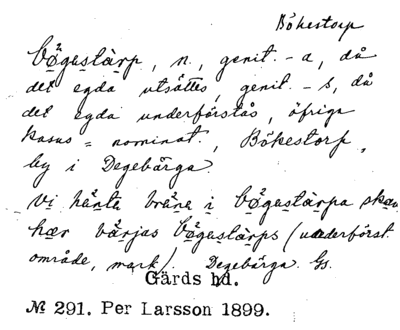 Bökestorp
bǫ̈gastärp, n., genit. -a, då
det egda utsättes, genit. -s, då
det egda underförstås, öfriga
kasus = nominat., Bökestorp,
by i Degebärga.
vi hänta bräne i bǫ̈gastärpa skau
hær värjas bǫ̈gastärps (underförst.
område, mark). Degebärga. Gs.
Gärds hd.
№ 291. Per Larsson 1899.